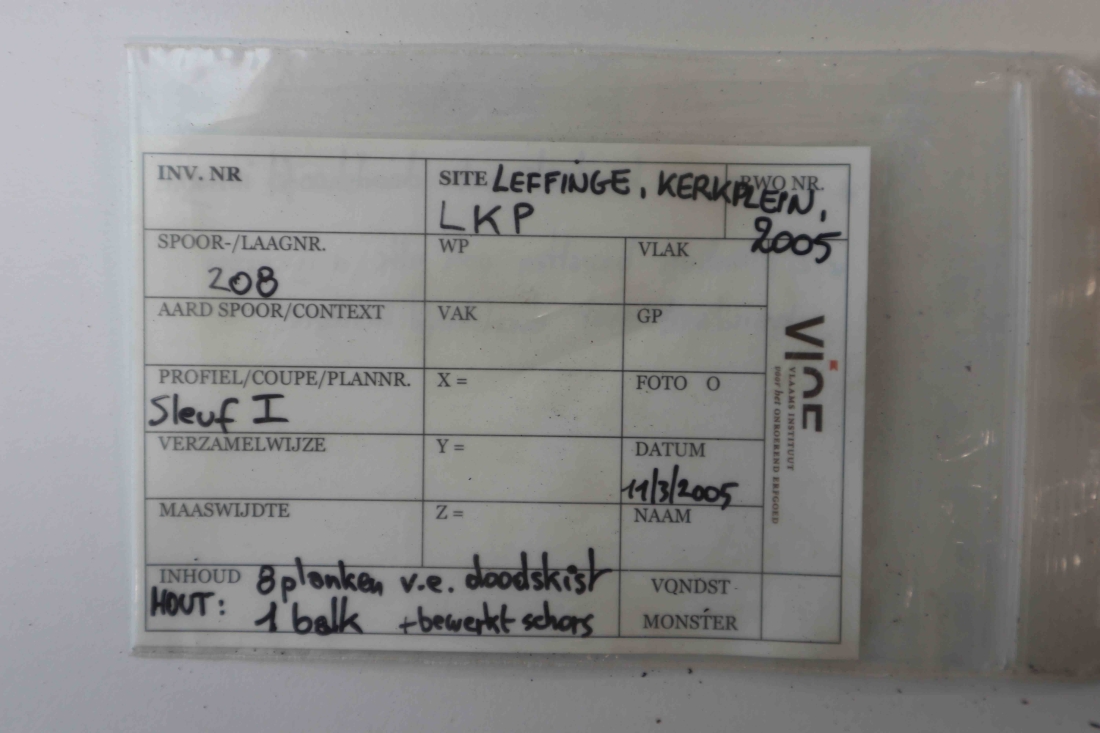 INV. NR
SITE LEFFINGE, KERKPLEIN,
RWO NR.
LKP
2005
SPOOR-/LAAGNR.
WP
VLAK
208
AARD SPOOR/CONTEXT
VAK
GP
PROFIEL/COUPE/PLANNR.
X =
FOTO O
Sleuf I
VERZAMELWIJZE
Y =
DATUM
11/3/2005
MAASWIJDTE
Z =
NAAM
INHOUD 8 planken v.e. doodskist
VONDST
HOUT: 1 balk + bewerkt schors
MONSTER
VIOE
VLAAMS INSTITUUT
voor het ONROEREND ERFGOED